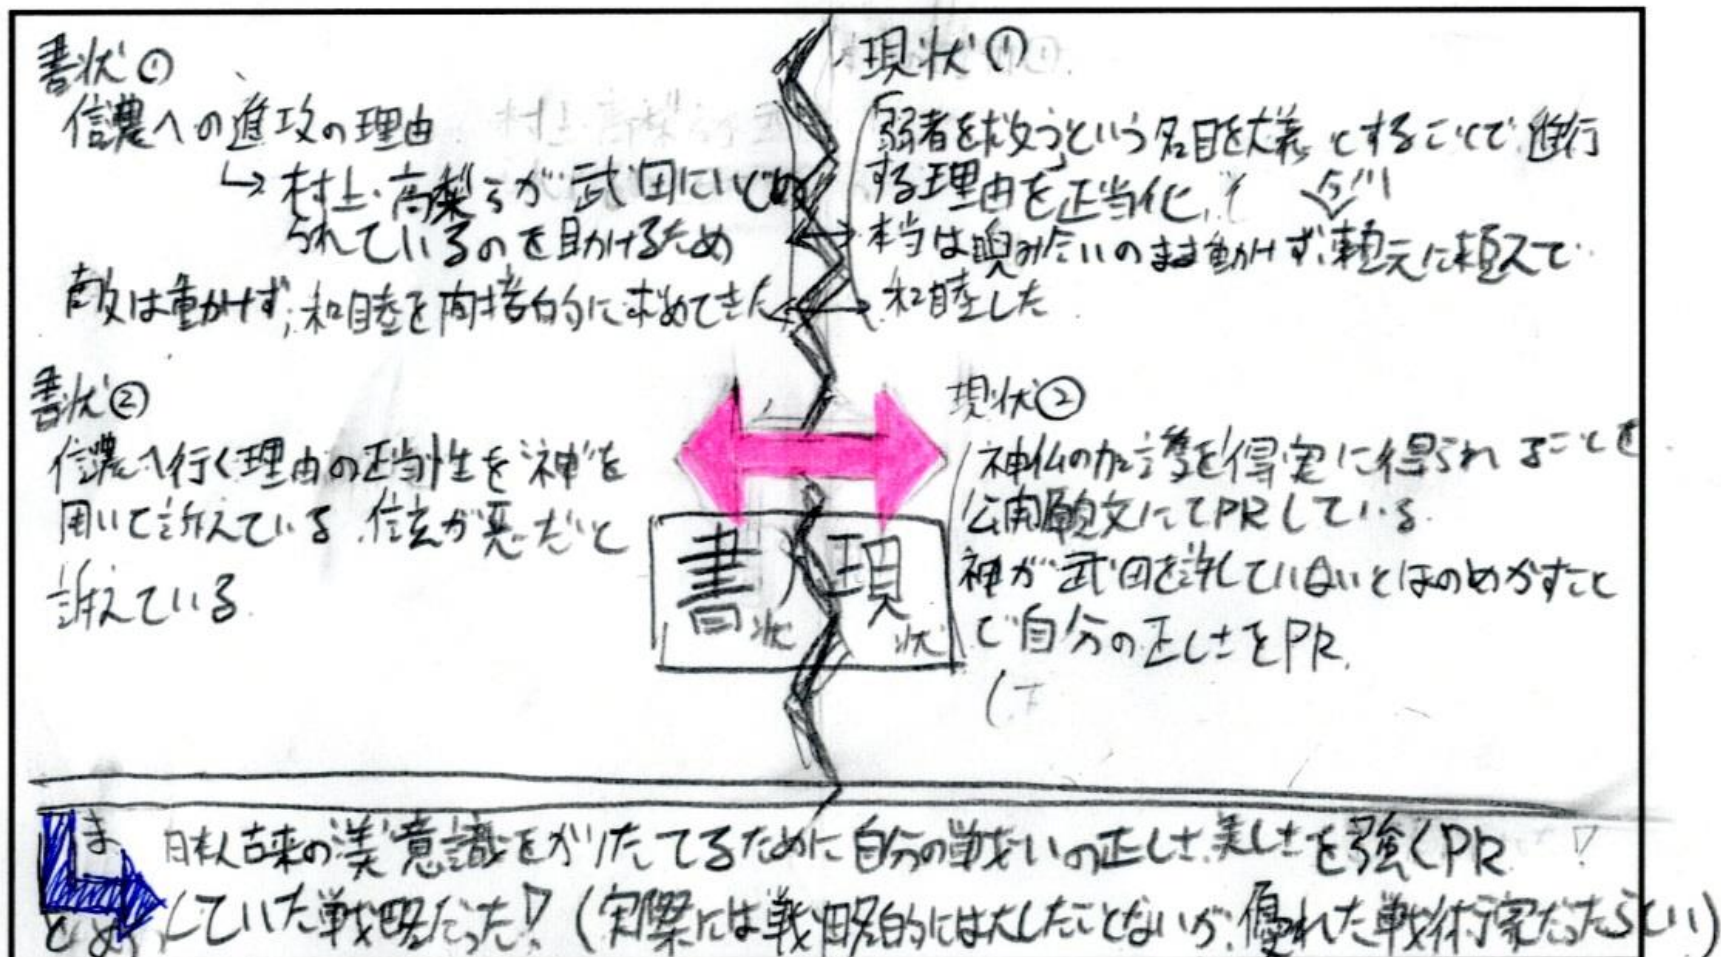 書状①
信濃への進攻の理由
↳ 村上・高梨らが武田にいじめ
られているのを助けるため
敵は動けず、和睦を間接的に求めてきた
書状②
信濃へ行く理由の正当性を神を
用いて訴えている。信玄が悪だと
訴えている
現状①
「弱者を救う」という名目を大義とすることで進行
する理由を正当化
本当は睨み合いのまま動けず、義元に頼んで
和睦した
現状②
神仏の加護を得られることを
公開願文にてPRしている。
神が武田を許していないとほのめかすこと
で自分の正しさをPR.
書状
現状
まとめ
日本人古来の美意識をかりたてるために自分の戦いの正しさ、美しさを強くPR
していた戦略だった!(実際には戦略的にはたいしたことないが、優れた戦術家だったらしい)